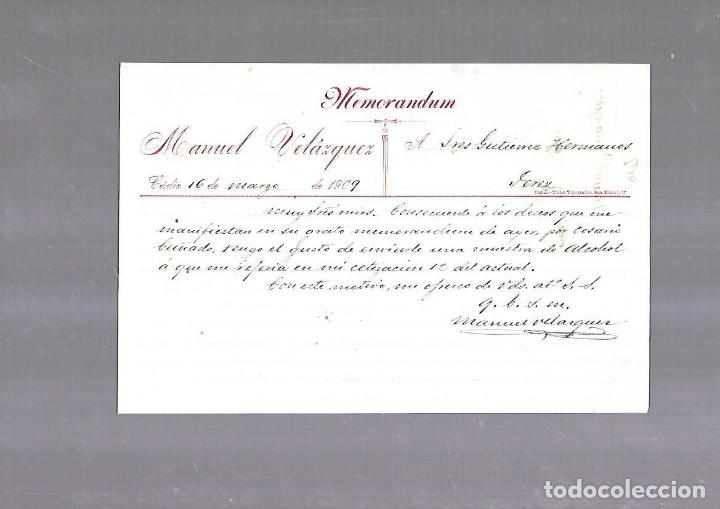 Memorandum
Manuel Velázquez
A Sres Gutierrez Hermanos
Jerez
Cádiz 16 de marzo de 1909
Muy Sres mios. Consecuente á los deseos que me
manifiestan en su grato memorandum de ayer, por cosario
Cuñado, tengo el gusto de enviarle una muestra de Alcohol
á que me referia en mi cotizacion 12 del actual.
Con este motivo, me ofrezco de Vds. atº S. S.
q. b. s. m.
Manuel Velazquez
todocoleccion.net